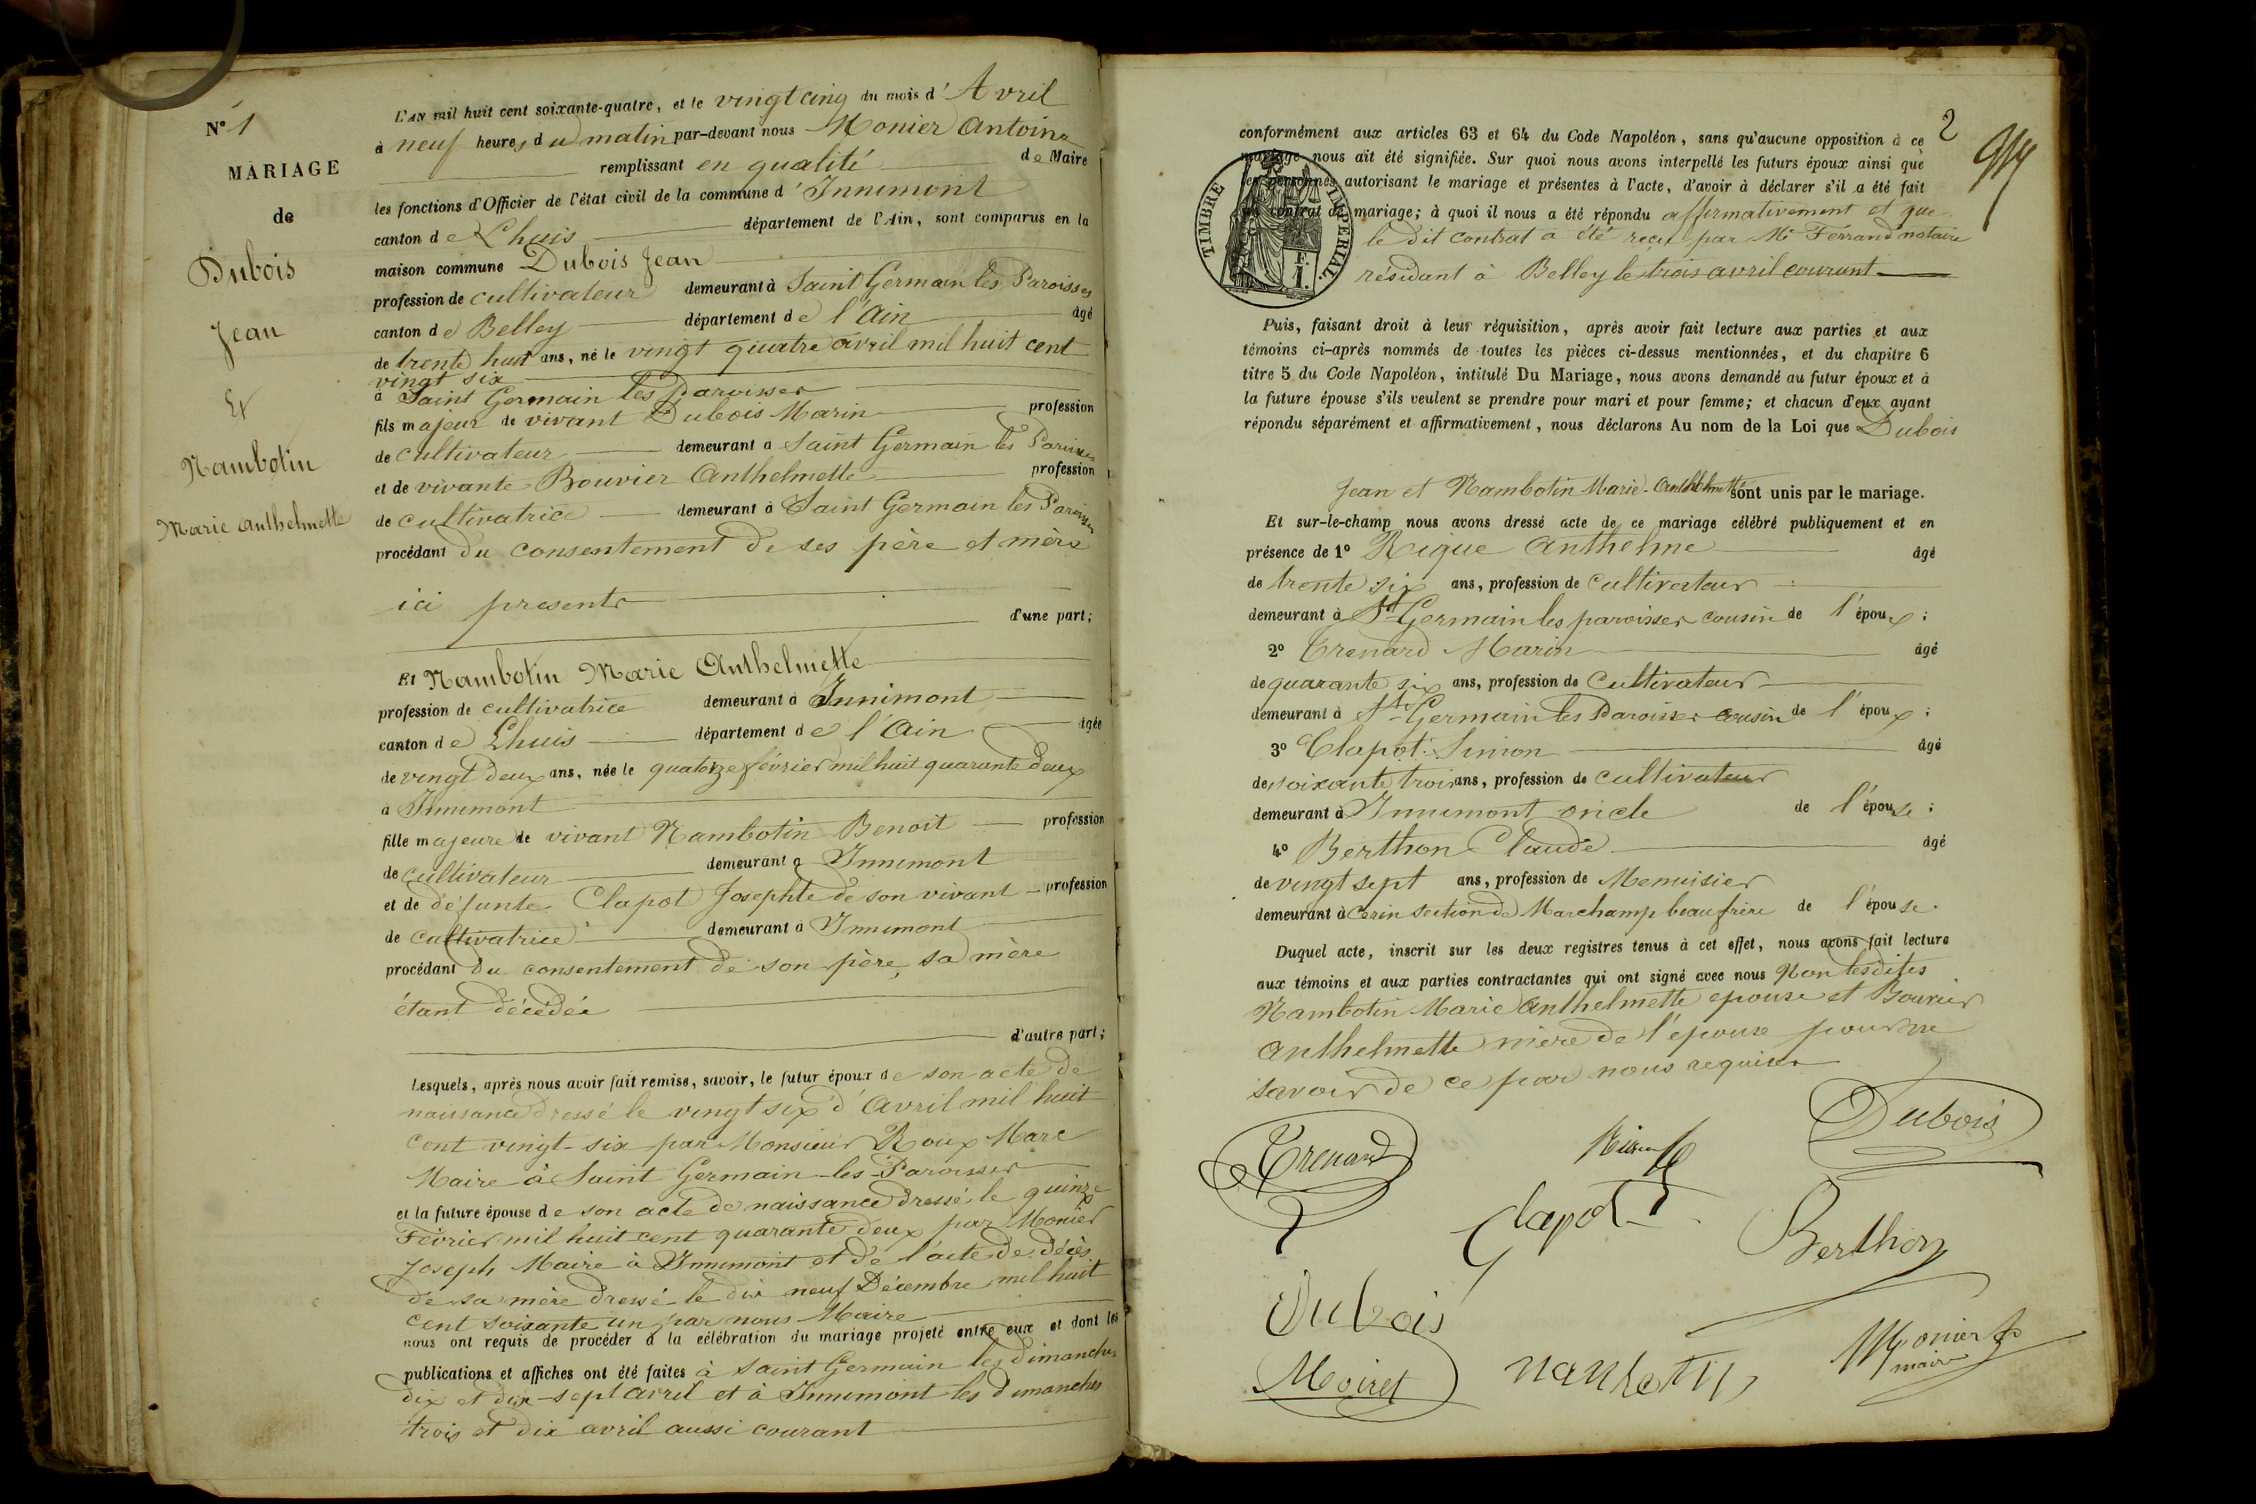 N° 1
MARIAGE
de
Dubois
Jean
Et
Nambotin
Marie Anthelmette
L'AN mil huit cent soixante-quatre, et le vingt cinq du mois d'Avril
à neuf heures du matin par-devant nous Monier Antoine
remplissant en qualité de Maire
les fonctions d'Officier de l'état civil de la commune d'Innimont
canton de Lhuis département de l'Ain, sont comparus en la
maison commune Dubois Jean
profession de cultivateur demeurant à Saint Germain les Paroisses
canton de Belley département de l'Ain âgé
de trente huit ans, né le vingt quatre avril mil huit cent
vingt six
à Saint Germain les Paroisses
fils majeur de vivant Dubois Marin profession
de cultivateur demeurant à Saint Germain les Paroisses
et de vivante Bouvier Anthelmette profession
de cultivatrice demeurant à Saint Germain les Paroisses
procédant du consentement de ses père et mère
ici presents
d'une part;
Et Nambotin Marie Anthelmette
profession de cultivatrice demeurant à Innimont
canton de Lhuis département de l'Ain âgée
de vingt deux ans, née le quatorze février mil huit quarante deux
à Innimont
fille majeure de vivant Nambotin Benoit profession
de cultivateur demeurant à Innimont
et de défunte Clapot Josephte de son vivant profession
de cultivatrice demeurant à Innimont
procédant du consentement de son père, sa mère
étant décédée
d'autre part;
Lesquels, après nous avoir fait remise, savoir, le futur époux de son acte de
naissance dressé le vingt six d'Avril mil huit
cent vingt-six par Monsieur Roux Marc
Maire à Saint Germain-les Paroisses
et la future épouse de son acte de naissance dressé le quinze
Février mil huit cent quarante deux par Monier
Joseph Maire à Innimont et de l'acte de décès
de sa mère dressé le dix neuf Décembre mil huit
cent soixante un par nous Maire
nous ont requis de procéder à la célébration du mariage projeté entre eux et dont les
publications et affiches ont été faites à Saint Germain les dimanches
dix et dix-sept avril et à Innimont les dimanches
trois et dix avril aussi courant
2
conformément aux articles 63 et 64 du Code Napoléon, sans qu'aucune opposition à ce
mariage nous ait été signifiée. Sur quoi nous avons interpellé les futurs époux ainsi que
les personnes autorisant le mariage et présentes à l'acte, d'avoir à déclarer s'il a été fait
un contrat de mariage; à quoi il nous a été répondu affirmativement et que
le dit contrat a été reçu par Me Ferrand notaire
résidant à Belley le trois avril courant
TIMBRE IMPERIAL.
F.
1.
Puis, faisant droit à leur réquisition, après avoir fait lecture aux parties et aux
témoins ci-après nommés de toutes les pièces ci-dessus mentionnées, et du chapitre 6
titre 5 du Code Napoléon, intitulé Du Mariage, nous avons demandé au futur époux et à
la future épouse s'ils veulent se prendre pour mari et pour femme; et chacun d'eux ayant
répondu séparément et affirmativement, nous déclarons Au nom de la Loi que Dubois
Jean et Nambotin Marie-Anthelmette sont unis par le mariage.
Et sur-le-champ nous avons dressé acte de ce mariage célébré publiquement et en
présence de 1° Rigue Anthelme âgé
de trente six ans, profession de cultivateur
demeurant à St Germain les paroisses cousin de l'époux;
2° Trenard Marin âgé
de quarante six ans, profession de Cultivateur
demeurant à St Germain les Paroisses cousin de l'époux;
3° Clapot Simon âgé
de soixante trois ans, profession de cultivateur
demeurant à Innimont oncle de l'épouse;
4° Berthon Claude âgé
de vingt sept ans, profession de Menuisier
demeurant à Cerin section de Marchamp beaufrère de l'épouse.
Duquel acte, inscrit sur les deux registres tenus à cet effet, nous avons fait lecture
aux témoins et aux parties contractantes qui ont signé avec nous Non lesdites
Nambotin Marie Anthelmette epouse et Bouvier
Anthelmette mère de l'époux pour ne
savoir de ce par nous requises
Trenard
Dubois
Clapot
Berthon
Dubois
Moiret
nanbotin
Monier
maire